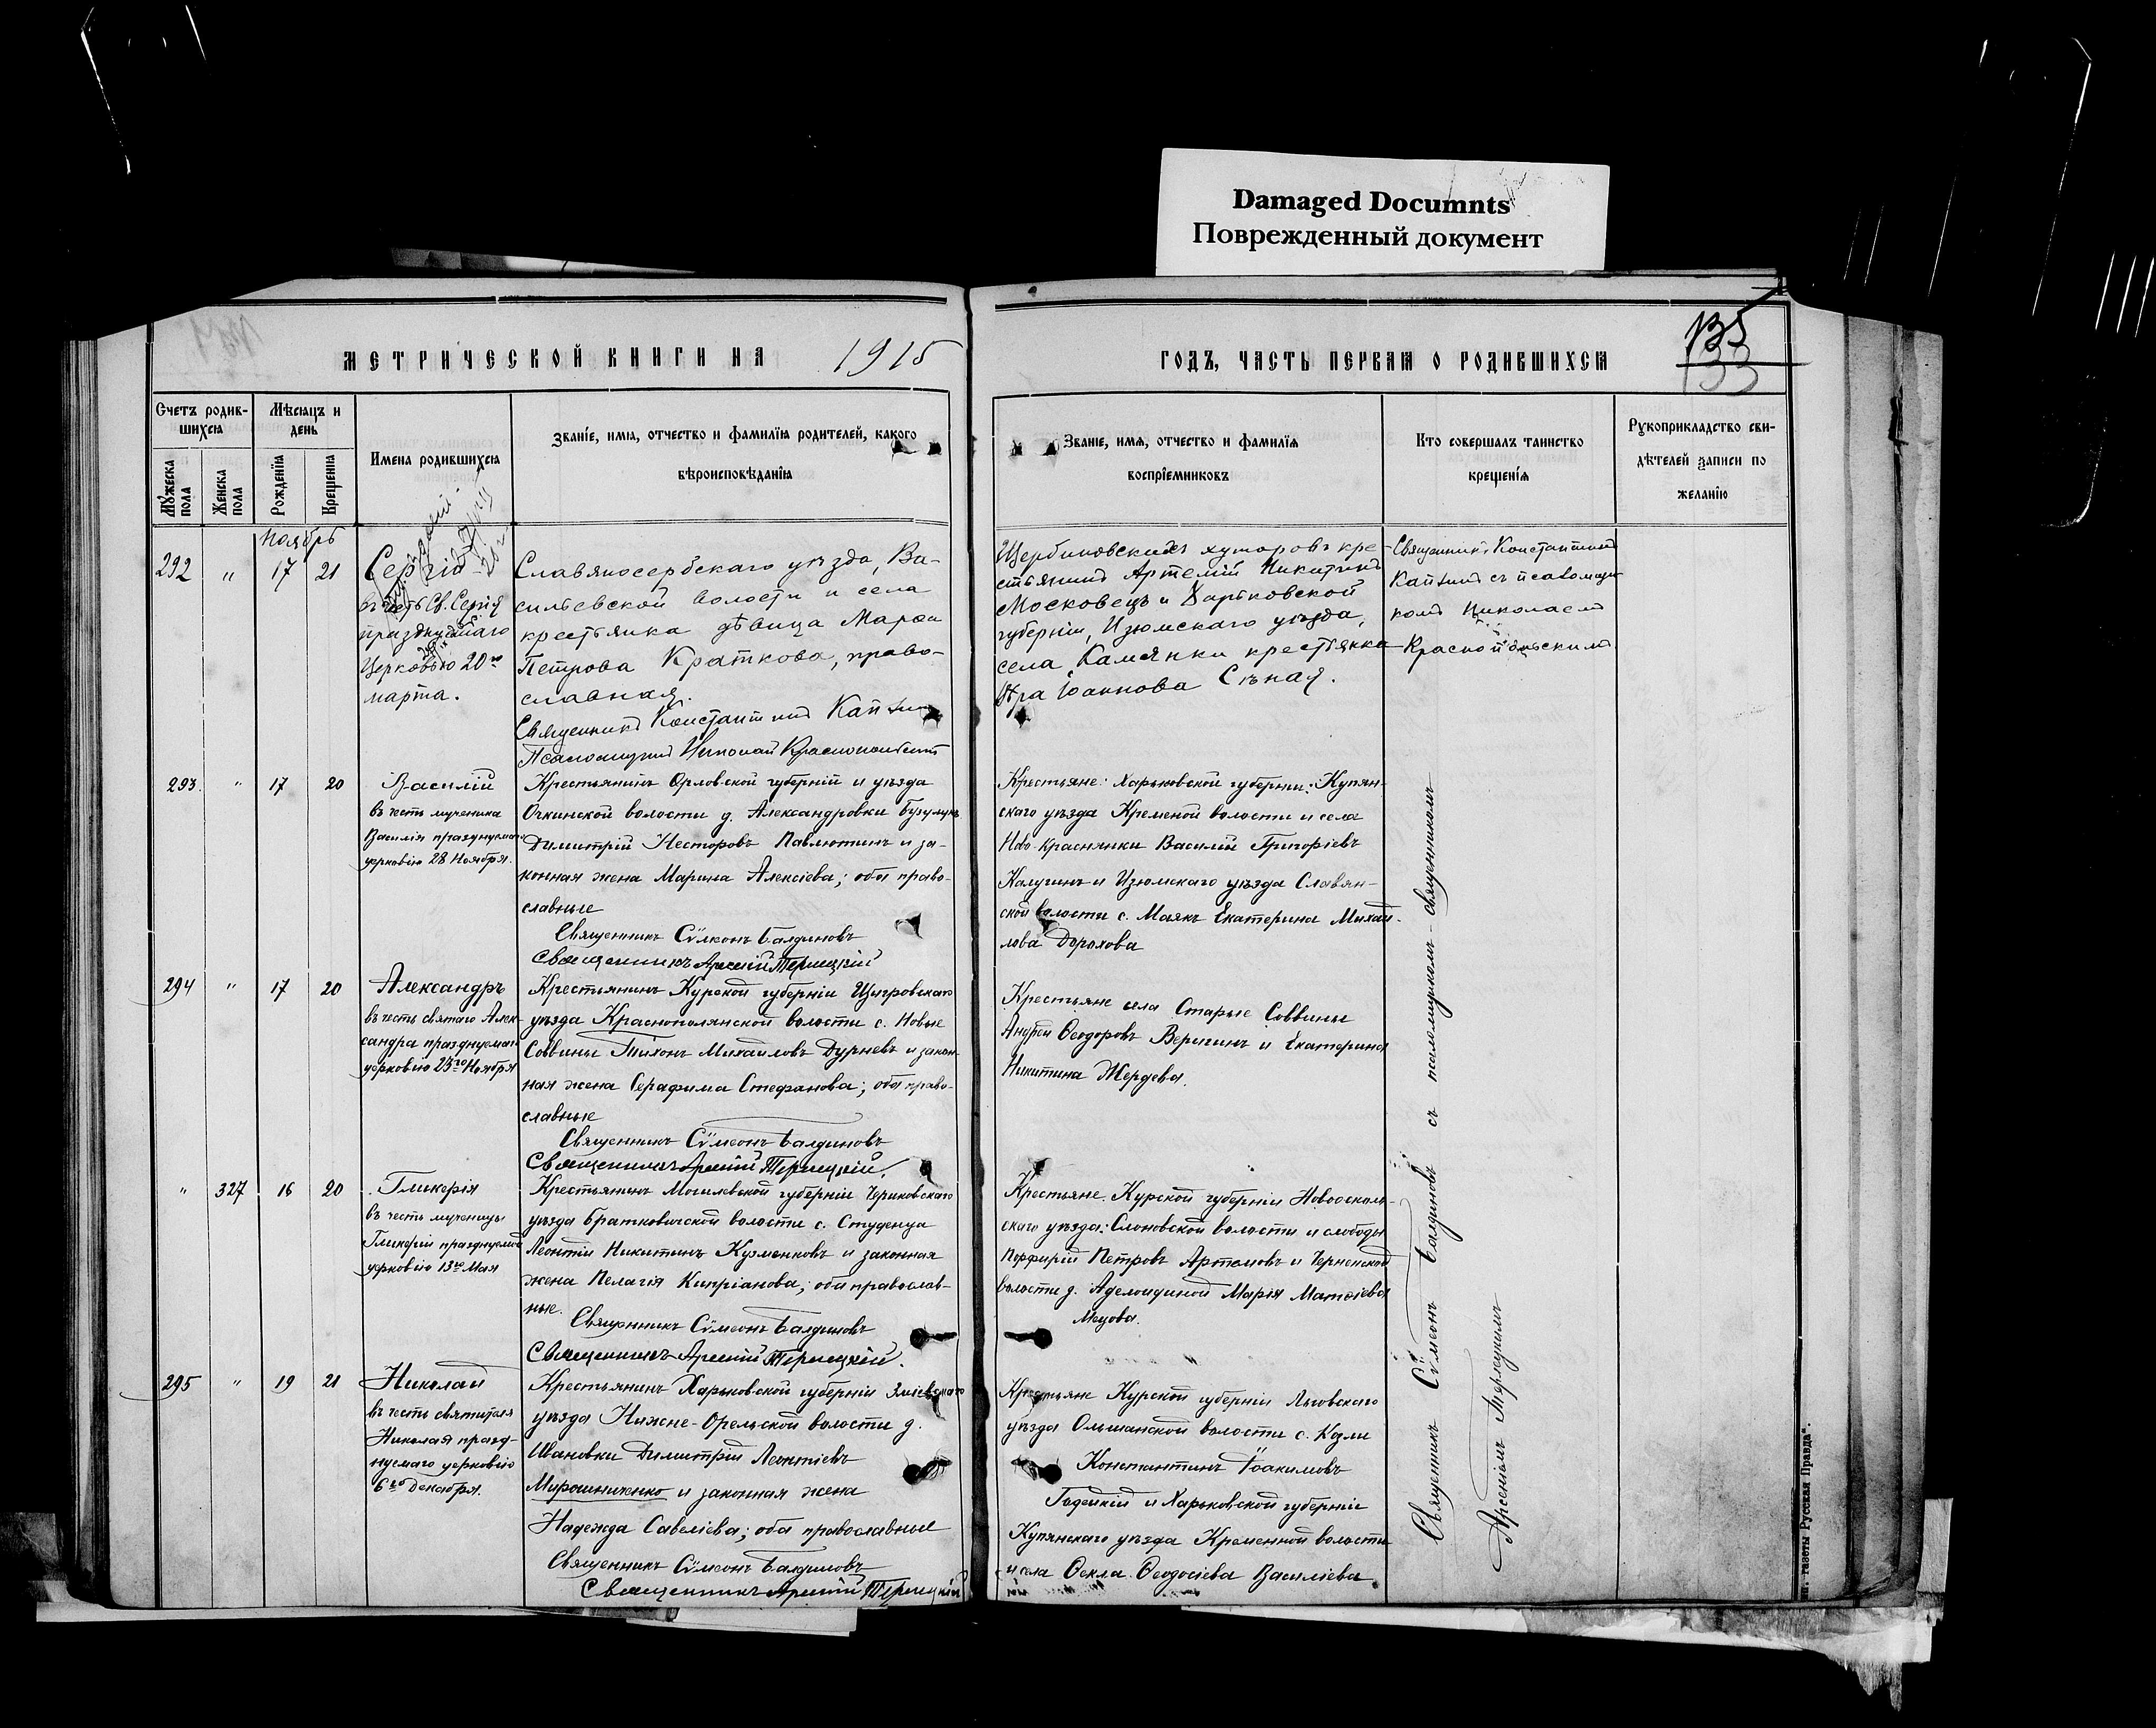 Damaged Documnts
Поврежденный документ
135
133
МЕТРИЧЕСКОЙ КНИГИ НА 1915
ГОДЪ, ЧАСТЬ ПЕРВАЯ О РОДИВШИХСЯ
Счетъ родив-
шихся
Мѣсяцъ и
день
Мужеска
пола
Женска
пола
Рожденія
Крещенія
Имена родившихся
Званіе, имя, отчество и фамилія родителей, какого
вѣроисповѣданія
Званіе, имя, отчество и фамилія
воспріемниковъ
Кто совершалъ таинство
крещенія
Рукоприкладство сви-
дѣтелей записи по
желанію
Ноябрь
292 " 17 21
Сергій
въ честь Св. Сергія
празднуемаго
Церковью 20го
марта.
Славяносербскаго уѣзда, Ва-
сильевской волости и села
крестьянка дѣвица Марѳа
Петрова Краткова, право-
славная.
Священникъ Константинъ
Псаломщикъ Николай
Щербиновскихъ хуторовъ кре-
стьянинъ Артемій Никитинъ
Московецъ и Харьковской
губерніи, Изюмскаго уѣзда,
села Камянки крестьянка
Іоаннова Сѣная.
Священникъ Константинъ
съ псаломщи-
комъ Николаемъ
293. " 17 20
Василій
въ честь мученика
Василія празднуемаго
церковію 28 Ноября.
Крестьянинъ Орловской губерніи и уѣзда
волости д. Александровки
Димитрій Несторовъ Павлютинъ и за-
конная жена Марина Алексіева; оба право-
славные
Священникъ Сѵмеонъ Балдиновъ
Священникъ Арсеній Терлецкій
Крестьяне: Харьковской губерніи: Купян-
скаго уѣзда Кременой волости и села
Ново-Краснянки Василій Григоріевъ
Калугинъ и Изюмскаго уѣзда Славян-
ской волости с. Маякъ Екатерина Михай-
лова Дорохова
294 " 17 20
Александръ
въ честь святаго Алек-
сандра празднуемаго
церковію 23го Ноября
Крестьянинъ Курской губерніи Щигровскаго
уѣзда Краснополянской волости с. Новые
Соввины Тихонъ Михайловъ Дурневъ и закон-
ная жена Серафима Стефанова; оба право-
славные
Священникъ Сѵмеонъ Балдиновъ
Священникъ Арсеній Терлецкій.
Крестьяне села Старые Соввины
Андрей Ѳеодоровъ Веригинъ и Екатерина
Никитина Жердева.
" 327 16 20
Гликерія
въ честь мученицы
Гликеріи празднуемой
церковію 13го Мая
Крестьянинъ Могилевской губерніи Чериковскаго
уѣзда Братковичской волости с. Студенца
Леонтій Никитинъ Кузменковъ и законная
жена Пелагія Кипріанова; оба православ-
ные.
Священникъ Сѵмеонъ Балдиновъ
Священникъ Арсеній Терлецкій.
Крестьяне: Курской губерніи Новооскольс-
скаго уѣзда: Слоновской волости и слободы
Порфирій Петровъ Артемовъ и
волости д. Марія Матѳіева
295 " 19 21
Николай
въ честь святителя
Николая празд-
нуемаго церковію
6го Декабря.
Крестьянинъ Харьковской губерніи Зміевскаго
уѣзда Нижне-Орельской волости д.
Ивановки Димитрій Леонтіевъ
Мирошниченко и законная жена
Надежда Савеліева; оба православные
Священникъ Сѵмеонъ Балдиновъ
Священникъ Арсеній Терлецкій
Крестьяне Курской губерніи Льговскаго
уѣзда Ольшанской волости с.
Константинъ Іоакимовъ
и Харьковской губерніи
Купянскаго уѣзда Кременной волости
и села Ѳекла Ѳеодосіева Василіева
Священникъ Сѵмеонъ Балдиновъ съ псаломщикомъ - священникомъ
Арсеніемъ Терлецкимъ
газеты Русская Правда".